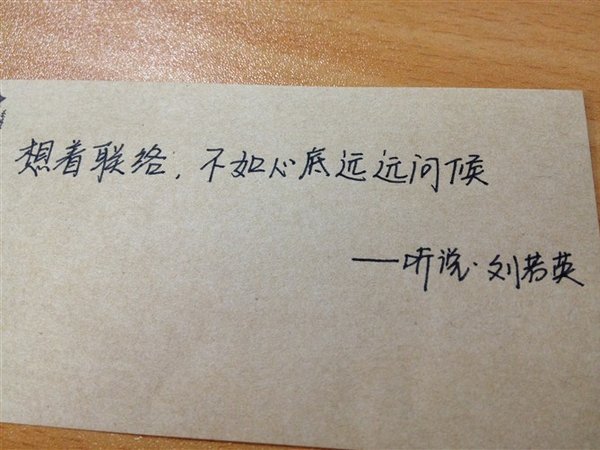 想着联络，不如心底远远问候
——听说·刘若英